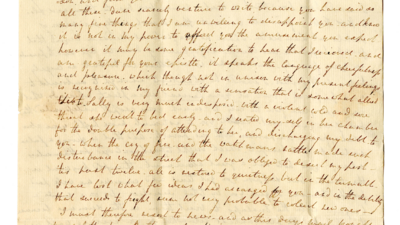 all this. I can scarcely venture to write because you have said so
many fine things that I am unwilling to disappoint you, and fear
it is not in my power to afford you the amusement you expect
however it may be some gratification to hear that I received and
am grateful for your epistle, it speaks the language of cheerfulness
and pleasure, which though not in unison with my present feelings
is recognized in my friend with a sensation that is somewhat allied
Sally is very much indisposed with a violent cold and sore
throat she went to bed early, and I seated myself in her chamber
for the double purpose of attending to her, and discharging my debt to
you. When the cry of fire and the watchmans rattle made such
disturbance in the street that I was obliged to desert my post
this least twelve, all is restored to quietness but in the
I have lost what few ideas I had arranged for you and in the
that succeeds to fright am not very probable to collect new ones
I must therefore resort to news, and as this days